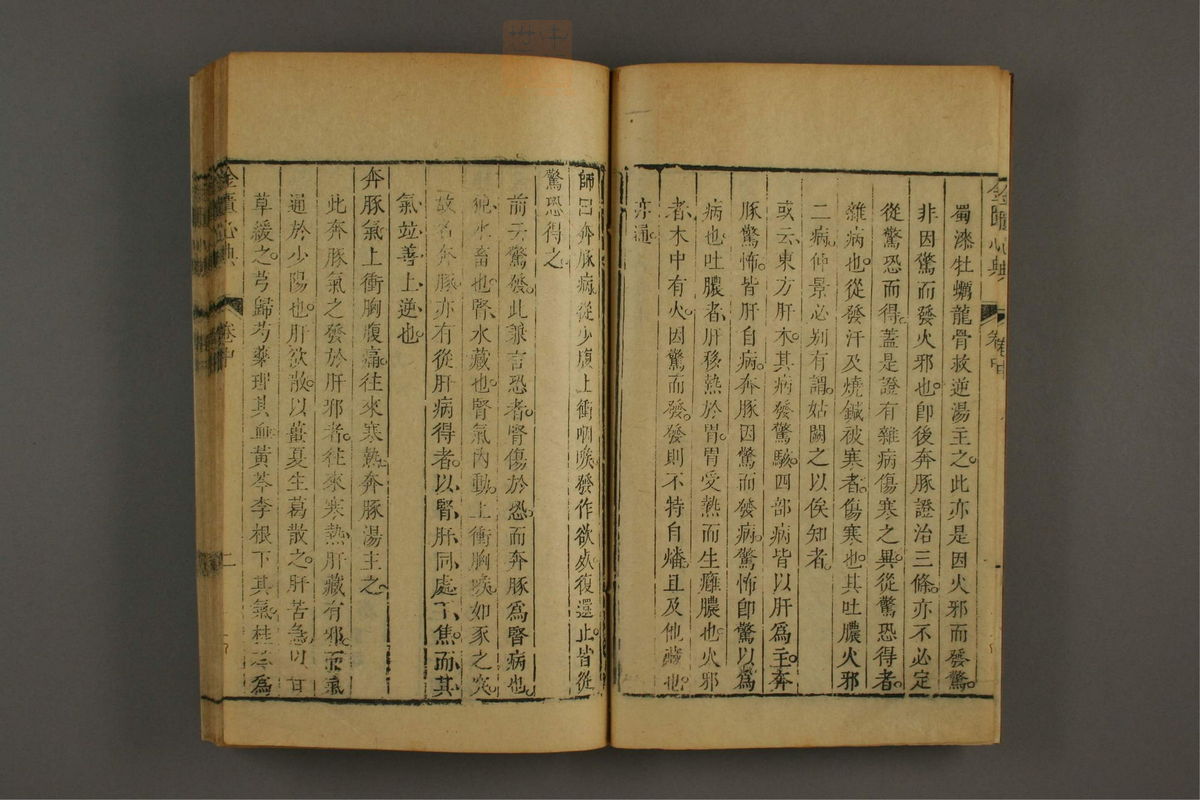 金匱心典
卷中
蜀漆牡蠣龍骨救逆湯主之此亦是因火邪而發驚
非因驚而發火邪也卽後奔豚證治三條亦不必定
從驚恐而得蓋是證有雜病傷寒之異從驚恐得者
雜病也從發汗及燒鍼被寒者傷寒也其吐膿火邪
二病仲景必别有謂姑闕之以俟知者
或云東方肝木其病發驚駭四部病皆以肝爲主奔
豚驚怖皆肝自病奔豚因驚而發病驚怖卽驚以爲
病也吐膿者肝移熱於胃胃受熱而生癰膿也火邪
者木中有火因驚而發發則不特自燔且及他藏也
亦通
師曰奔豚病從少腹上衝咽喉發作欲死復還止皆從
驚恐得之
前云驚發此兼言恐者腎傷於恐而奔豚爲腎病也
豚水畜也腎水藏也腎氣內動上衝胸喉如豕之突
故名奔豚亦有從肝病得者以腎肝同處下焦而其
氣竝善上逆也
奔豚氣上衝胸腹痛往來寒熱奔豚湯主之
此奔豚氣之發於肝邪者往來寒熱肝藏有邪而氣
通於少陽也肝欲散以薑夏生葛散之肝苦急以甘
草緩之芎歸芍藥理其血黃芩李根下其氣桂苓爲
金匱心典
卷中
二